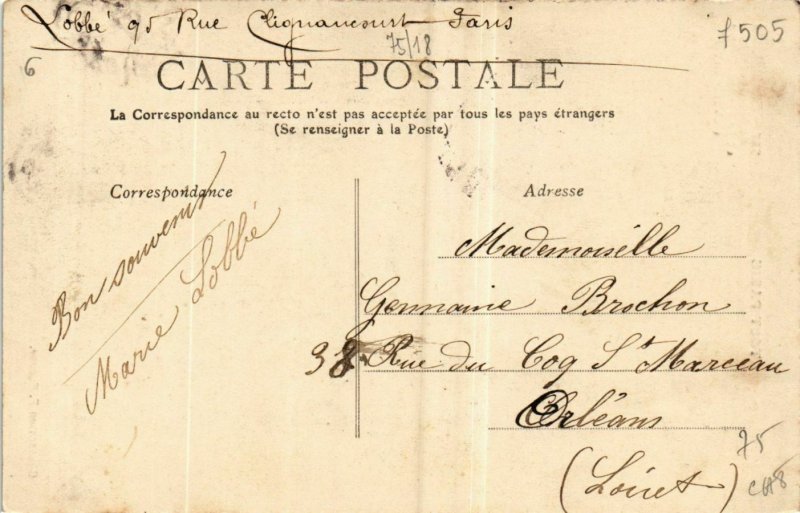 Lobbé 95 Rue Clignancourt Paris
75/18
7505
6
CARTE POSTALE
La Correspondance au recto n'est pas acceptée par tous les pays étrangers
(Se renseigner à la Poste)
Correspondance
Bon souvenir
Marie Lobbé
Adresse
Mademoiselle
Germaine Brochon
38 Rue du Coq St Marceau
Orléans
(Loiret)
75